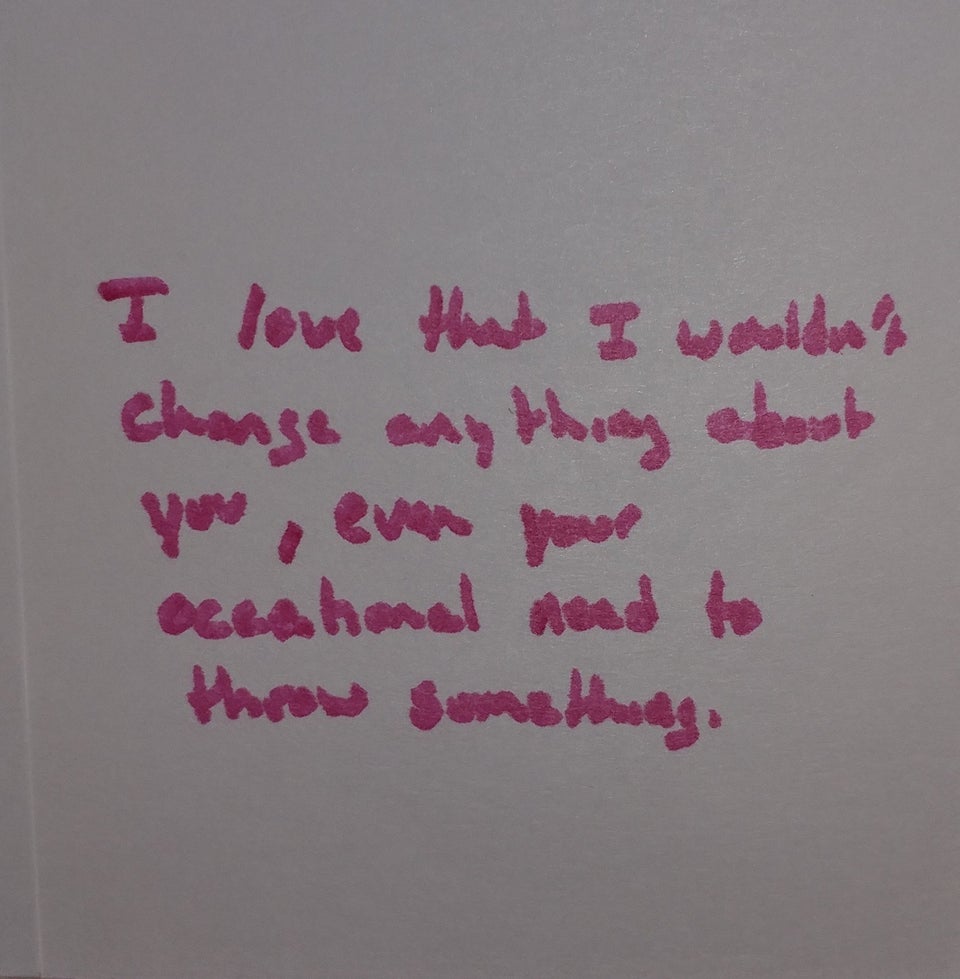 I love that I wouldn't
change anything about
you, even your
occational need to
throw something.